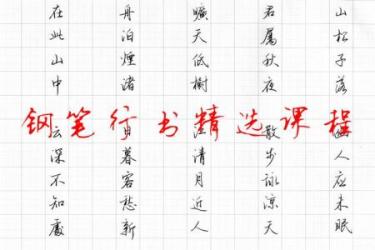 山松子落人应未眠
君屬秋夜散步詠涼天
曠天低樹清月近人
舟泊煙渚日暮客愁新
在此山中云深不知處
钢笔行书精选课程